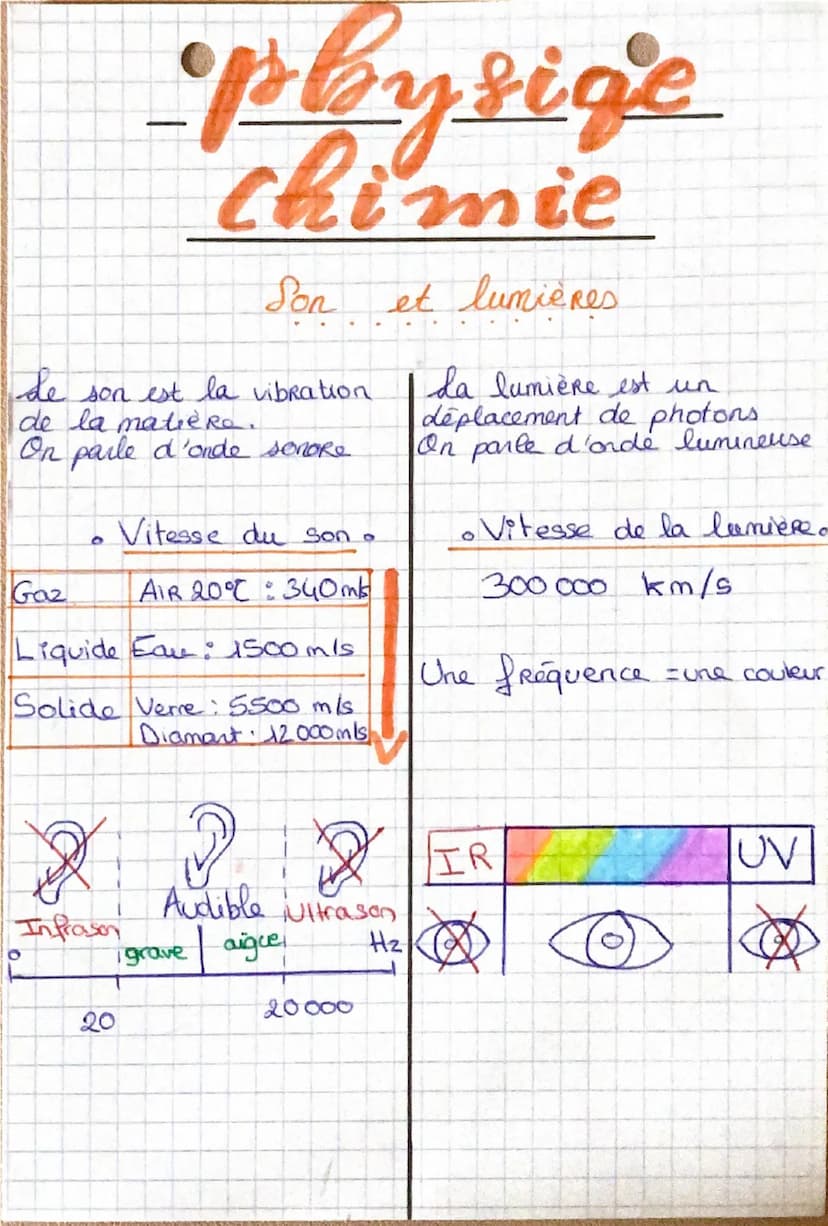 physiqe
chimie
Son et lumières
Le son est la vibration
de la matière.
On parle d'onde sonore
• Vitesse du son •
Gaz AIR 20°C : 340 m/s
Liquide Eau : 1500 m/s
Solide Verre : 5500 m/s
Diamant : 12 000 m/s
Infrason Audible Ultrason
grave aigüe
0 Hz
20 20 000
La lumière est un
déplacement de photons
On parle d'onde lumineuse
• Vitesse de la lumière •
300 000 km/s
Une fréquence = une couleur
IR UV